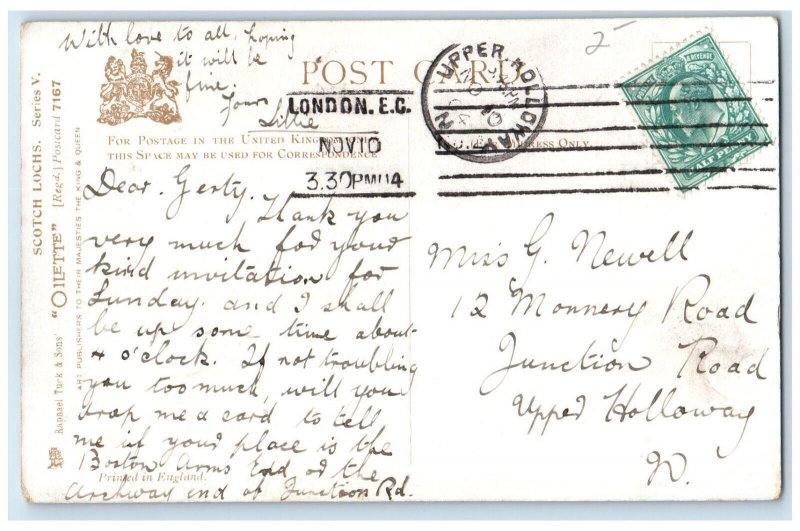 With love to all, hoping
it will be
fine,
Yours
Lillie
2
POST CARD
FOR POSTAGE IN THE UNITED KINGDOM
THIS SPACE MAY BE USED FOR CORRESPONDENCE
ONLY
LONDON.E.C.
NOV 10
3.30PM 04
UPPER HOLLOWAY
NO 10
N
HALFPENNY
SCOTCH LOCHS. Series V.
"OILETTE" [Regd.] Postcard 7167
Raphael Tuck & Sons'
ART PUBLISHERS TO THEIR MAJESTIES THE KING & QUEEN
Dear Gerty. Thank you
very much for your
kind invitation for
Sunday. and I shall
be up some time about
4 o'clock. If not troubling
you too much, will you
drop me a card to tell
me if your place is the
Boston Arms End or the
Archway end of Junction Rd.
Printed in England.
Miss G. Newell
12 Monnery Road
Junction Road
Upper Holloway
N.